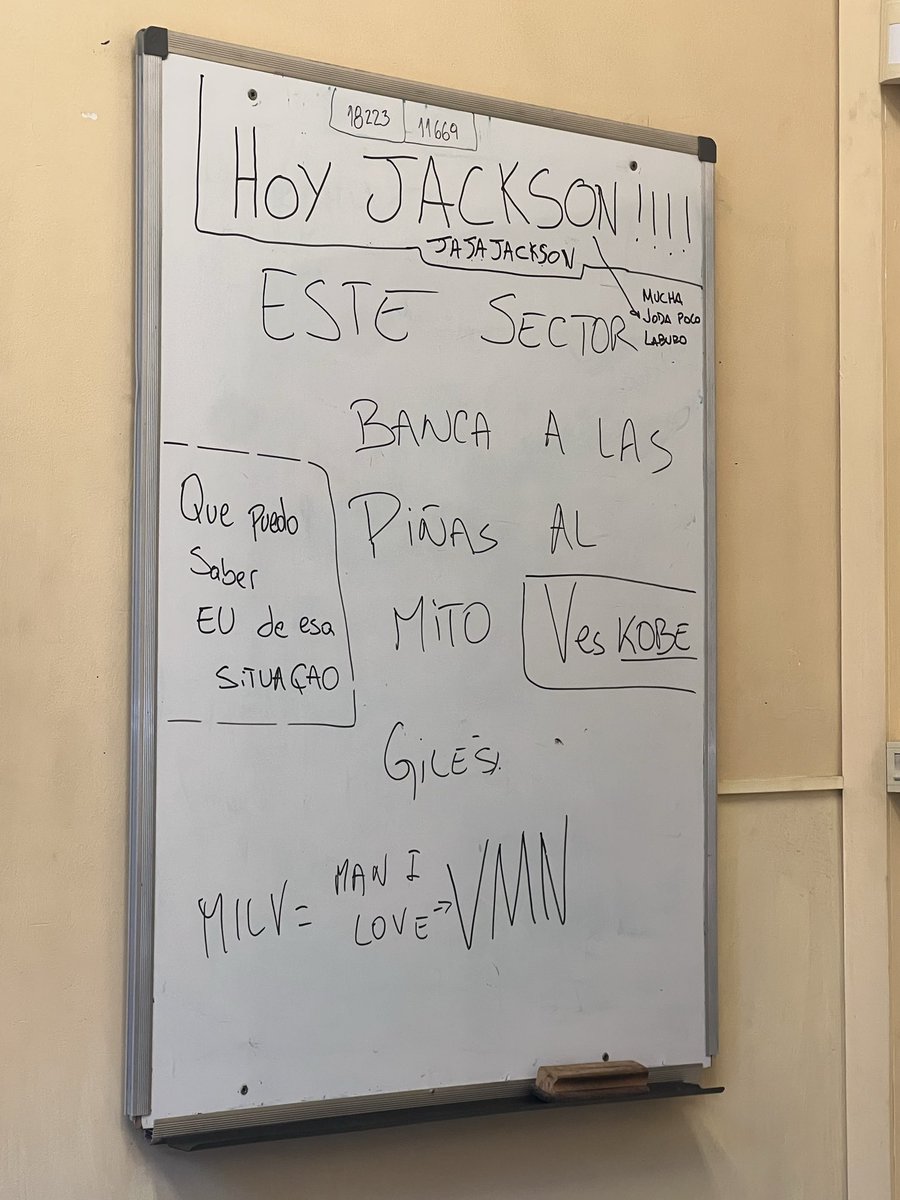 18223 11669
HOY JACKSON!!!!
JAJAJACKSON
MUCHA
JODA POCO
LABURO
ESTE SECTOR
BANCA A LAS
PIÑAS AL
MITO
Ves KOBE
Que puedo
Saber
EU de esa
SITUAÇAO
GILES!
MILV = MAN I
LOVE → VMN